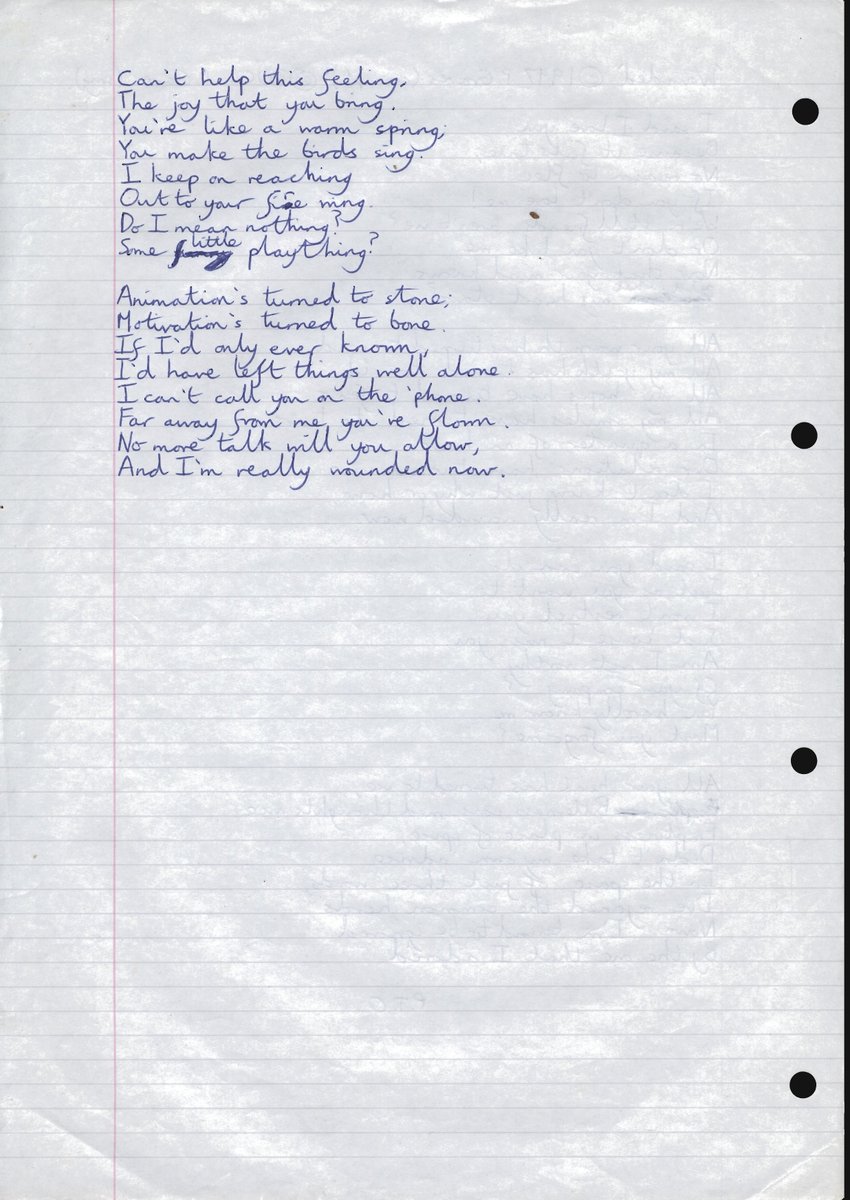 Can't help this feeling,
The joy that you bring.
You're like a warm spring;
You make the birds sing.
I keep on reaching
Out to your fire ring.
Do I mean nothing?
Some little plaything?
Animation's turned to stone;
Motivation's turned to bone.
If I'd only ever known,
I'd have left things well alone.
I can't call you on the 'phone.
Far away from me you're flown.
No more talk will you allow,
And I'm really wounded now.